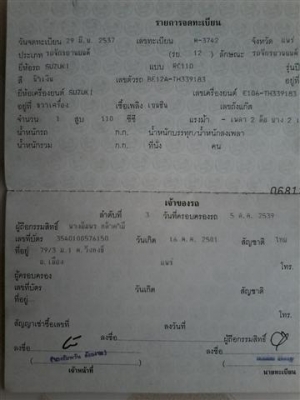 รายการจดทะเบียน
วันจดทะเบียน 29 มิ.ย 2537 เลขทะเบียน ฆ-3742 จังหวัด แพร่
ประเภท รถจักรยานยนต์ (รย. 12 ) ลักษณะ รถจักรยานยนต์
ยี่ห้อรถ SUZUKI แบบ RC110 รุ่นปี
สี เลขตัวรถ BE12A-TH339183 อยู่ที่
ยี่ห้อเครื่องยนต์ SUZUKI เลขเครื่องยนต์ E126-TH339183
อยู่ที่ เชื้อเพลิง เบนซิน เลขถังแก๊ส
จำนวน 1 สูบ 110 ซีซี แรงม้า - เพลา 2 ล้อ ยาง 2
น้ำหนักรถ ก.ก. น้ำหนักบรรทุก/น้ำหนักลงเพลา
น้ำหนักรวม ก.ก. ที่นั่ง คน
0681
เจ้าของรถ
ลำดับที่ 3 วันที่ครอบครองรถ 5 ต.ค. 2539
ผู้ถือกรรมสิทธิ์
เลขที่บัตร 3540100576150 วันเกิด 16 ต.ค. 2501 สัญชาติ ไทย
ที่อยู่ 79/3 ม.1 ต.วังหงส์
อ.เมือง แพร่ โทร.
ผู้ครอบครอง
เลขที่บัตร วันเกิด สัญชาติ
ที่อยู่
โทร.
สัญญาเช่าซื้อเลขที่ ลงวันที่ ผู้ถือกรรมสิทธิ์
ลงชื่อ ลงชื่อ
เจ้าหน้าที่ นายทะเบียน